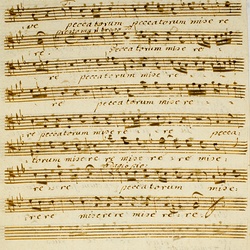 re peccatorum peccatorum mise re
re. peccatorum mise re
re peccatorum mise re
re peccatorum mise re
re peccatorum mise re re pecca
torum mise re re mise re re
re re peccatorum mise
re re miserere mise re re